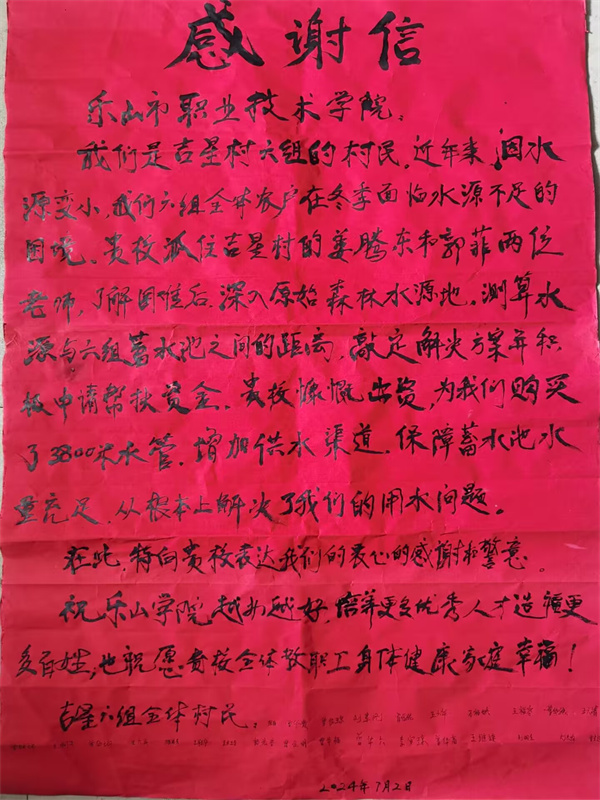 感谢信
乐山市职业技术学院:
我们是吉星村六组的村民,近年来,因水
源变小,我们六组全体农户在冬季面临水源不足的
困境。贵校派住吉星村的姜腾东和郭菲两位
老师,了解困难后,深入原始森林水源地。测算水
源与六组蓄水池之间的距离,敲定解决方案并积
极申请帮扶资金。贵校慷慨出资,为我们购买
了3800米水管。增加供水渠道,保障蓄水池水
量充足,从根本上解决了我们的用水问题。
在此,特向贵校表达我们的衷心的感谢和敬意。
祝乐山学院越办越好,培养更多优秀人才造福更
多百姓,也祝愿贵校全体教职工身体健康家庭幸福!
吉星六组全体村民:
2024年7月2日